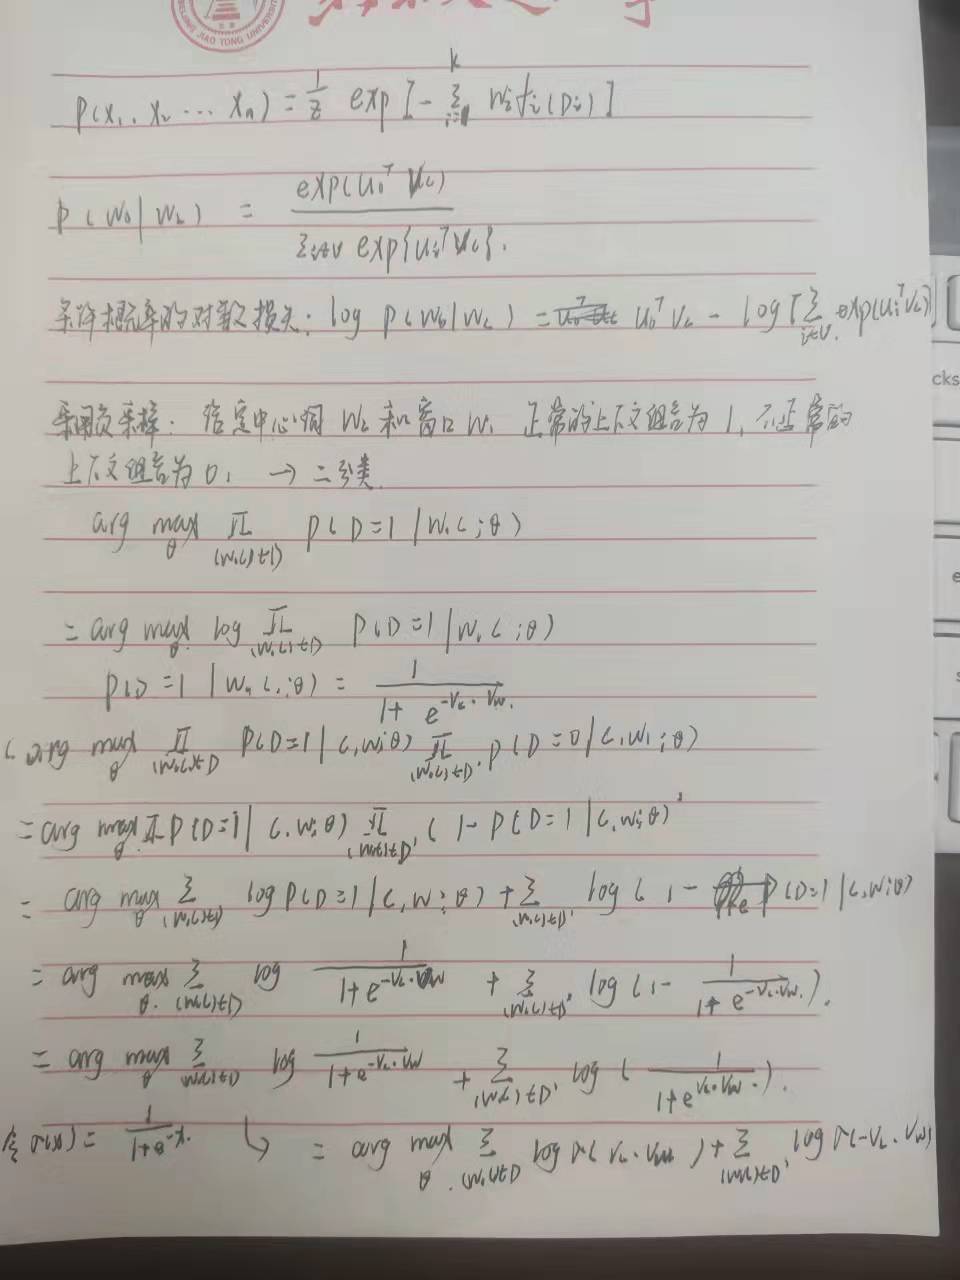 BEIJING JIAO TONG UNIVERSITY
P(x₁, x₂ ⋯ xₙ) = 1/Z exp [ - Σ_{i=1}^{k} wᵢfᵢ(Dᵢ) ]
P(w₀|w_c) = exp(u₀ᵀ v_c) / Σ_{i∈V} exp{uᵢᵀ v_c}.
条件概率的对数损失: log P(w₀|w_c) = u₀ᵀ v_c - log [ Σ_{i∈V} exp(uᵢᵀ v_c)]
采用负采样: 给定中心词 w_c 和窗口 w, 正常的上下文组合为 1, 不正常的
上下文组合为 0, → 二分类.
arg max_θ ∏_{(w,c)∈D} P(D=1|w,c;θ)
= arg max_θ log ∏_{(w,c)∈D} P(D=1|w,c;θ)
P(D=1|w,c;θ) = 1/(1+e^{-v_c·v_w})
arg max_θ ∏_{(w,c)∈D} P(D=1|c,w;θ) ∏_{(w,c)∈D'} P(D=0|c,w;θ)
= arg max_θ ∏ P(D=1|c,w;θ) ∏_{(w,c)∈D'} (1-P(D=1|c,w;θ)
= arg max_θ Σ_{(w,c)∈D} log P(D=1|c,w;θ) + Σ_{(w,c)∈D'} log (1- P(D=1|c,w;θ)
= arg max_θ Σ_{(w,c)∈D} log 1/(1+e^{-v_c·v_w}) + Σ_{(w,c)∈D'} log (1- 1/(1+e^{-v_c·v_w})).
= arg max_θ Σ_{(w,c)∈D} log 1/(1+e^{-v_c·v_w}) + Σ_{(w,c)∈D'} log ( 1/(1+e^{v_c·v_w}) ).
令 σ(x) = 1/(1+e^{-x}). ↳ = arg max_θ Σ_{(w,c)∈D} log σ(v_c·v_w) + Σ_{(w,c)∈D'} log σ(-v_c·v_w)
cks